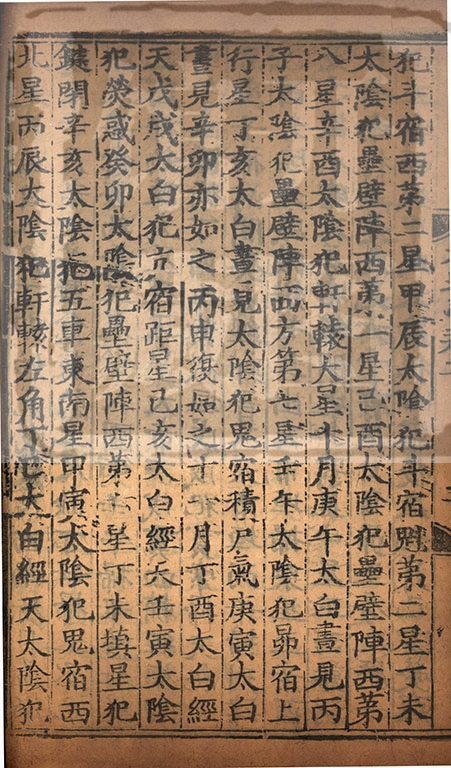 犯斗宿西第二星甲辰太陰犯斗宿魁第二星丁未
太陰犯壘壁陣西第一星己酉太陰犯壘壁陣西第
八星辛酉太陰犯軒轅大星十月庚午太白晝見丙
子太陰犯壘壁陣西方第七星壬午太陰犯昴宿上
行星丁亥太白晝見太陰犯鬼宿積尸氣庚寅太白
晝見辛卯亦如之丙申復如之十一月丁酉太白經
天戊戌太白犯亢宿距星己亥太白經天壬寅太陰
犯熒惑癸卯太陰犯壘壁陣西第五星丁未填星犯
鍵閉辛亥太陰犯五車東南星甲寅太陰犯鬼宿西
北星丙辰大陰犯軒轅左角丁巳太白經天太陰犯